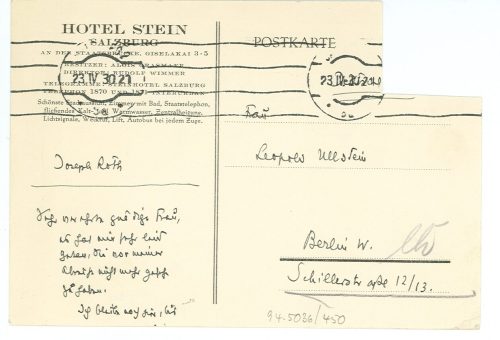 HOTEL STEIN
SALZBURG
AN DER STAATSBRÜCKE, GISELAKAI 3-5
BESITZER: ALOIS
DIREKTOR: RUDOLF WIMMER
TELEGRAMME: STEINHOTEL SALZBURG
TELEPHON 1870 UND
Schönste Stadtaussicht, Zimmer mit Bad, Staatstelephon,
fließendes Kalt- und Warmwasser, Zentralheizung,
Lichtsignale, Weckruf, Lift, Autobus bei jedem Zuge.
23 IV. 30 21
Joseph Roth
Sehr verehrte gnädige Frau,
es hat mir sehr leid
getan, Sie vor meiner
Abreise nicht mehr
zu haben.
Ich
POSTKARTE
23 IV.
Frau
Leopold Ullstein
Berlin W.
Schillerstraße 12/13.
94.5036/450